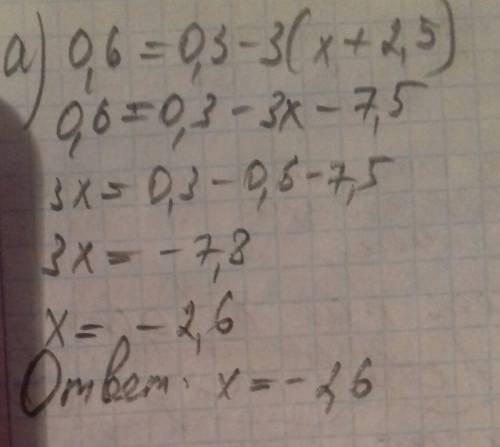 а) 0,6 = 0,3 - 3(x + 2,5)
0,6 = 0,3 - 3x - 7,5
3x = 0,3 - 0,6 - 7,5
3x = - 7,8
x = - 2,6
Ответ: x = - 2,6